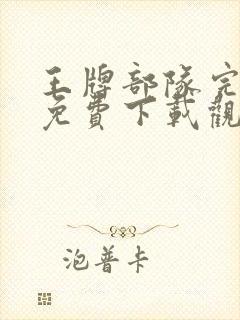 王牌部隊完
免費下載觀
泡普卡